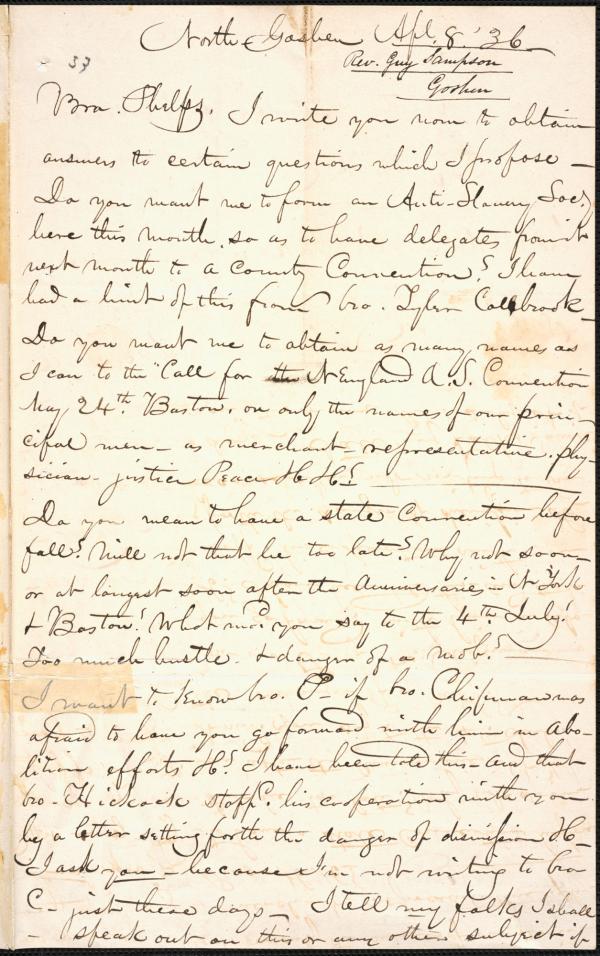 North Goshen Apl. 8. '36
37
Rev. Guy Sampson
Goshen
Bro. Phelps, I write you now to obtain
answers to certain questions which I propose –
Do you want me to form an Anti-Slavery Soc.y
here this month, so as to have delegates from it
next month to a County Convention? I have
had a hint of this from bro. Tyler Colebrook –
Do you want me to obtain as many names as
I can to the "Call for the N England A.S. Convention
May 24th. Boston, or only the names of our prin-
cipal men – as merchant – representative, phy-
sician – justice Peace &c &c?
Do you mean to have a state Convention before
fall? Will not that be too late? Why not soon –
or at longest soon after the Anniversaries in N York
& Boston? What wod. you say to the 4th July?
Too much bustle – & danger of a mob? –
I want to know bro. P– if bro. Chipman was
afraid to have you go forward with him in Abo-
lition efforts &c? I have been told this – and that
bro – Hickock stopp'd. his cooperation with you
by a letter setting forth the danger of division &c –
I ask you – because I'm not writing to bro
C – just these days – I tell my folks I shall
– speak out on this or any other subject if